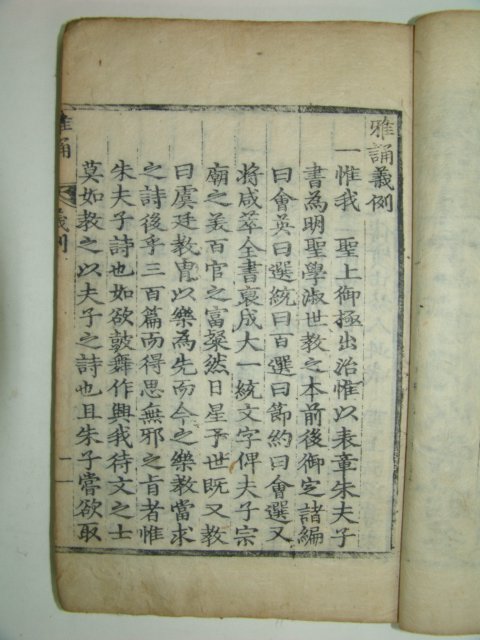 雅誦義例
一惟我 聖上御極出治惟以表章朱夫子
書為明聖學淑世教之本前後御定諸編
曰會英曰選統曰百選曰節約曰會選又
將咸萃全書裒成大一統文字俾夫子宗
廟之美百官之富粲然日星乎世既又教
曰虞廷教冑以樂為先而今之樂教當求
之詩後乎三百篇而得思無邪之旨者惟
朱夫子詩也如欲鼓舞作興我待文之士
莫如教之以夫子之詩也且朱子嘗欲取
雅誦 義例 一